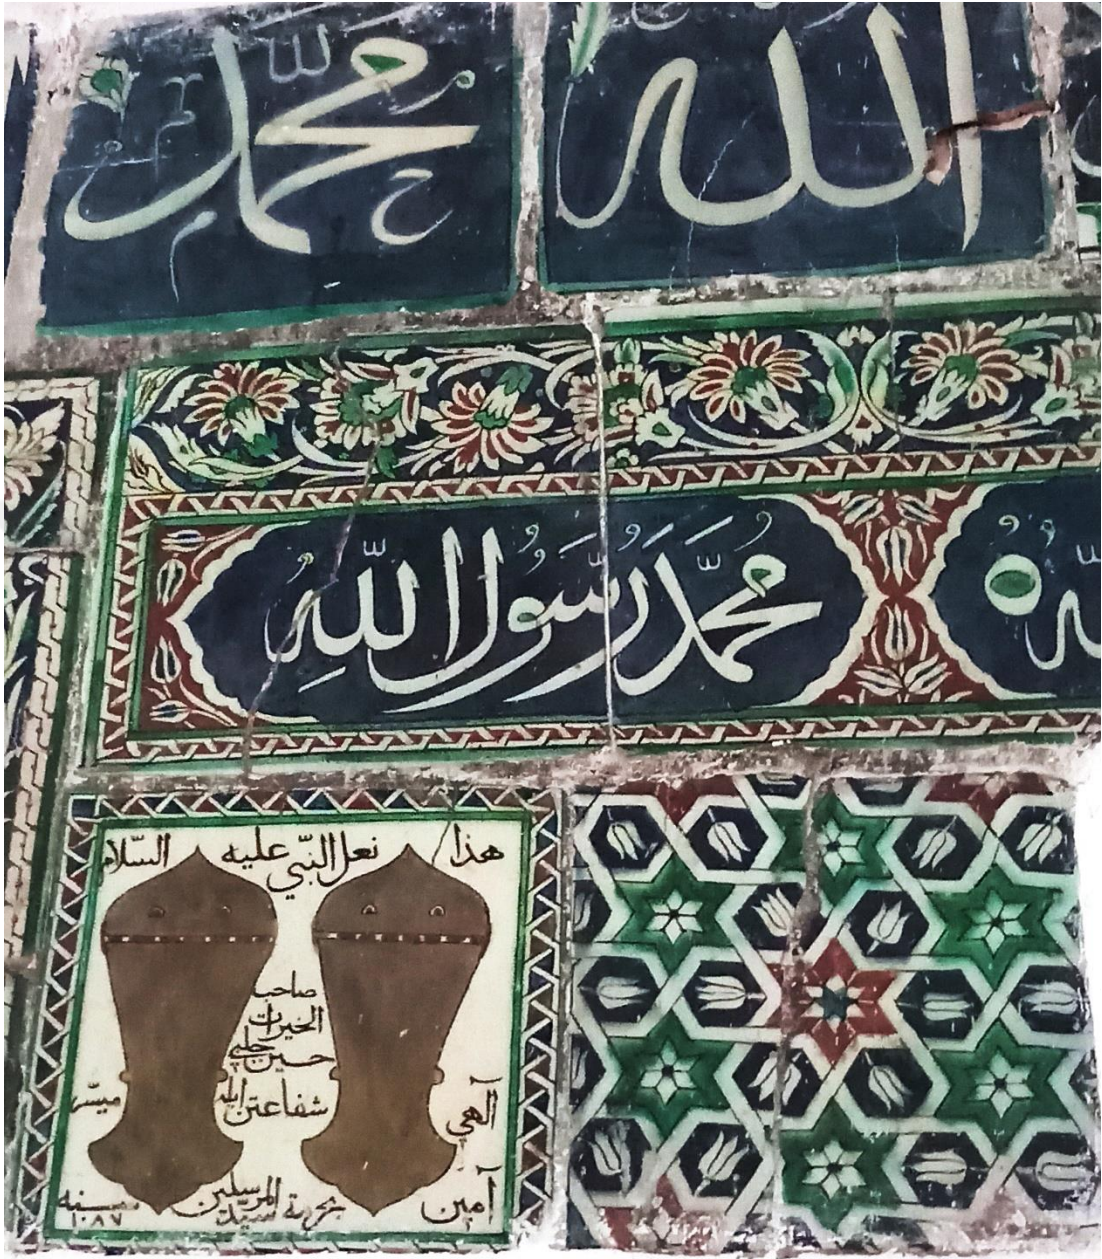 الله
محمد
محمد رسول الله
هذا نعل النبي عليه السلام
صاحب
الخيرات
حسين چلبي
آلهي شفاعتن ايله ميسّر
آمين بحرمة سيد المرسلين
سنه
١٠٨٧